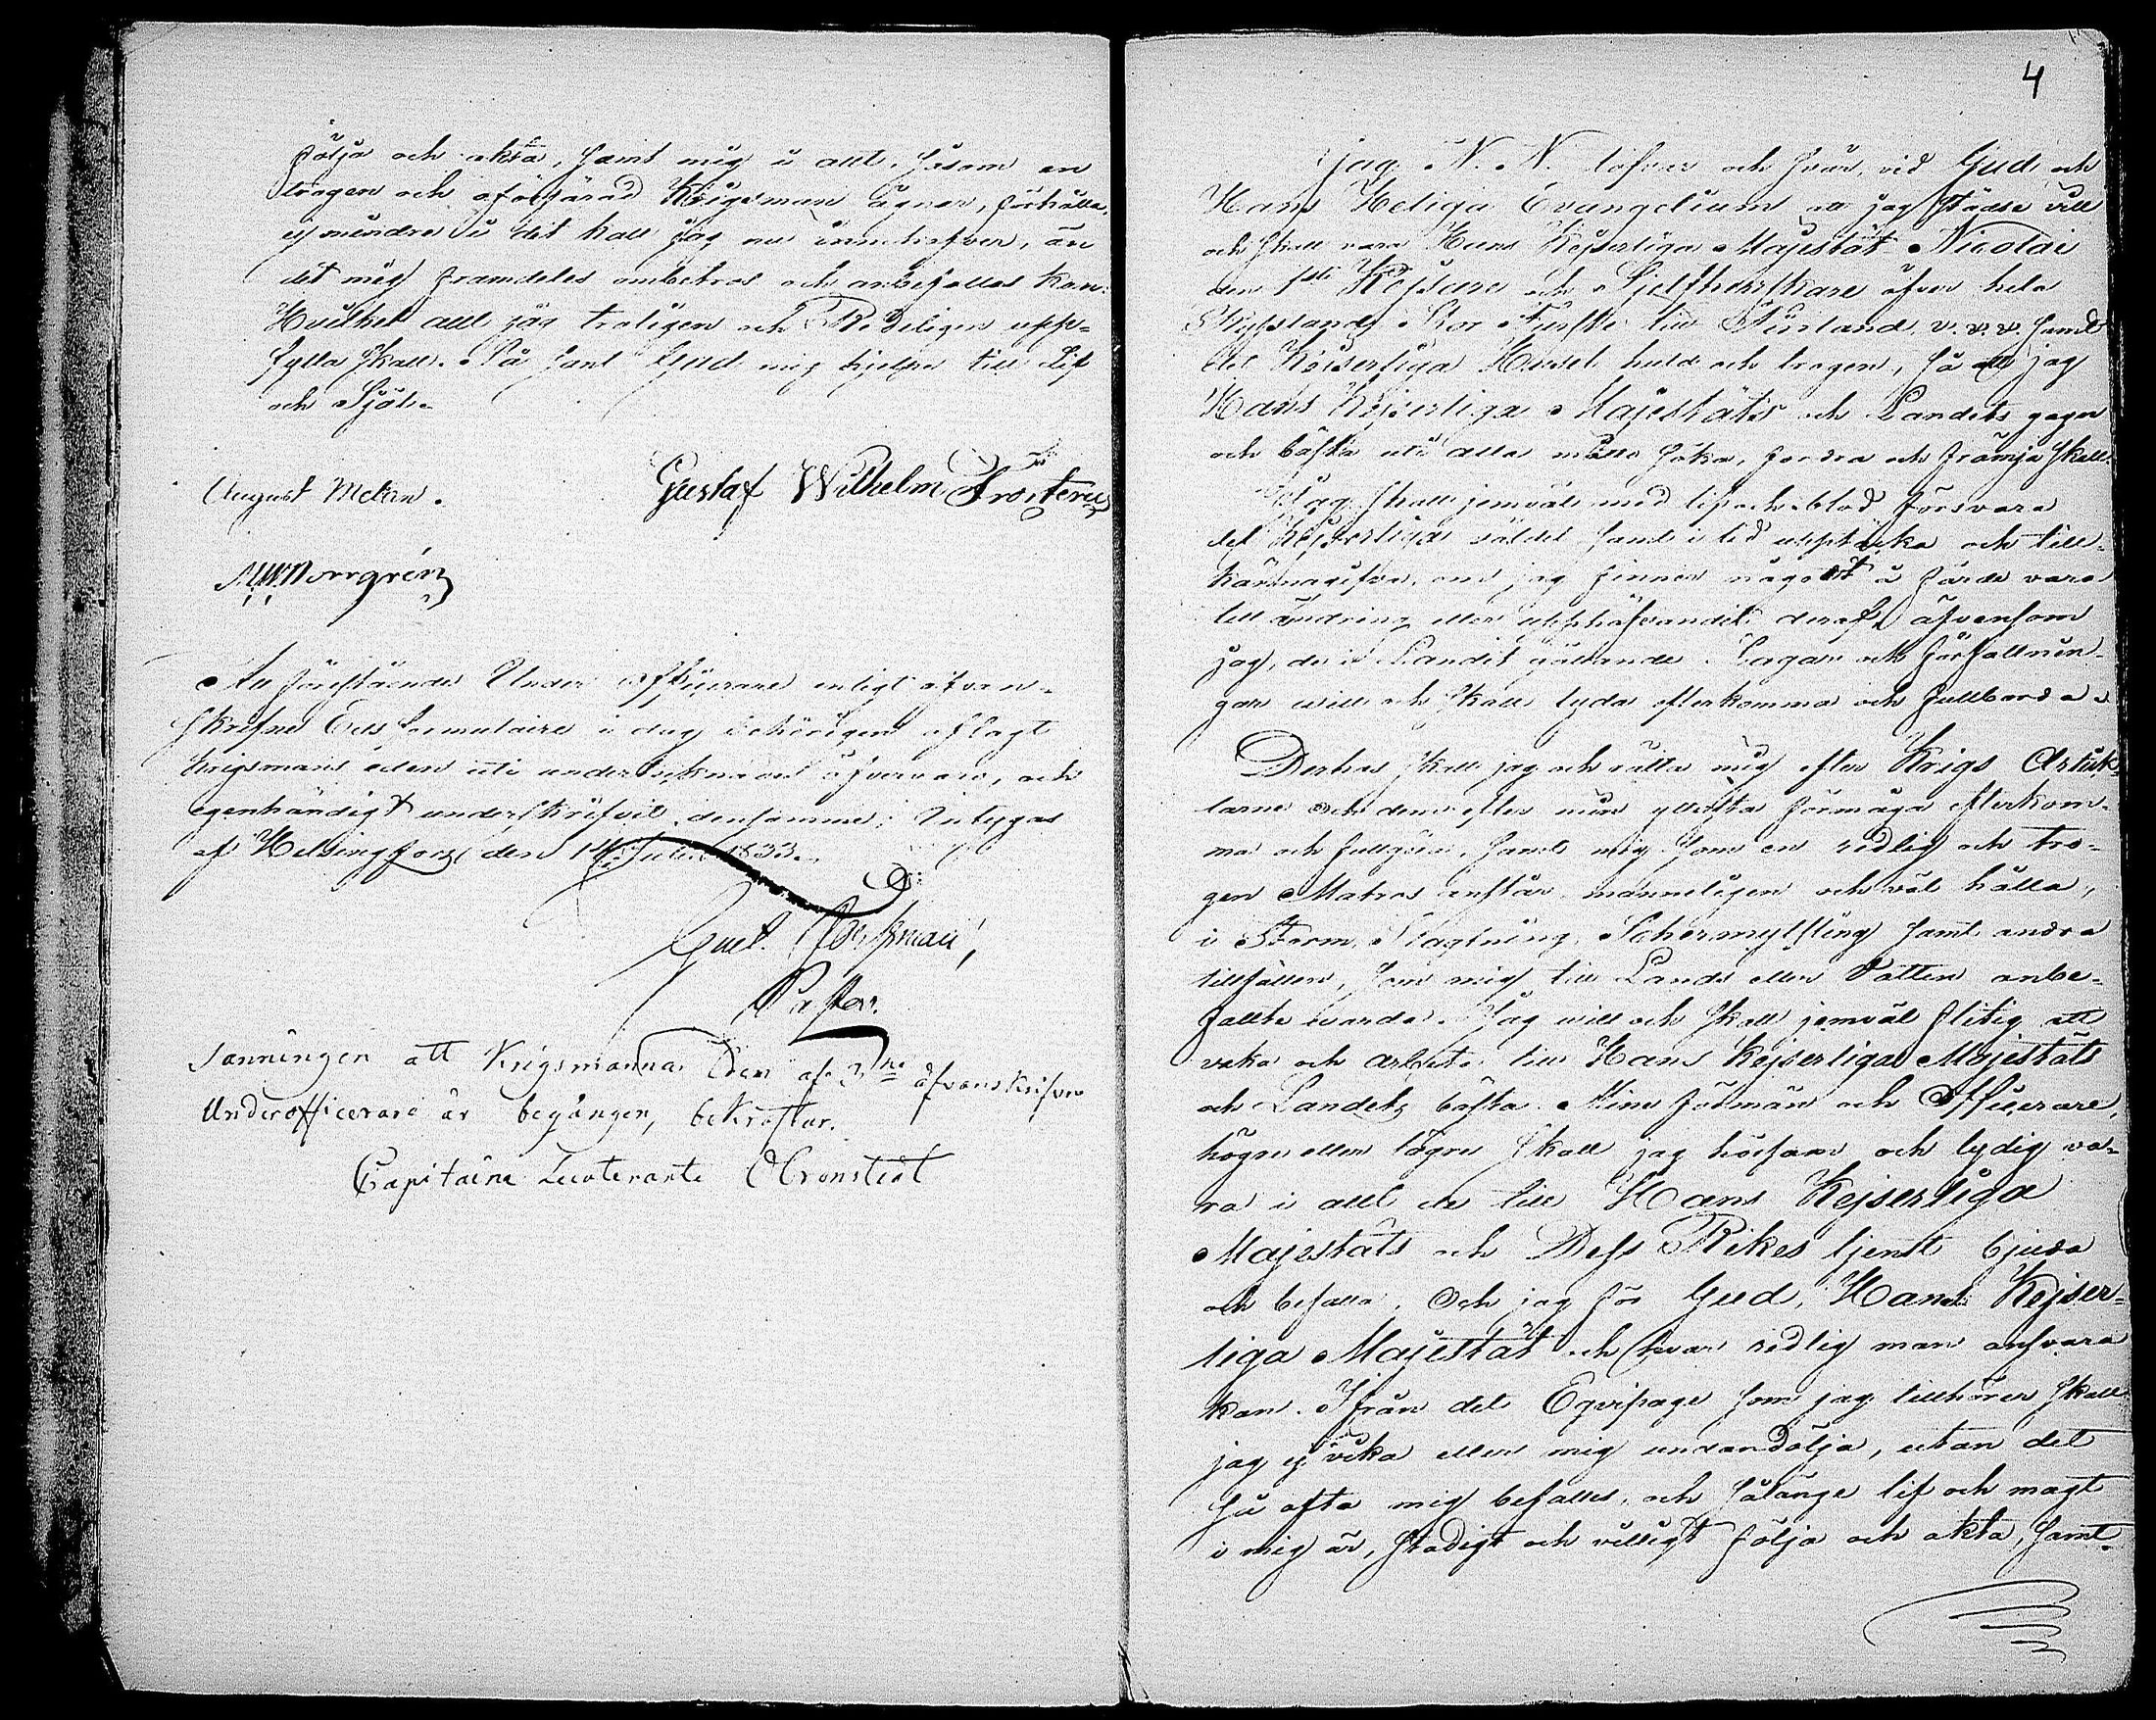 följa och akta, samt mig i allt, såsom en
trogen och oförfärad Krigsman ägnar, förhålla,
ej mindre i det kall jag nu innehafver, än
det mig framdeles ombetros och anbefallas kan.
Hvilket allt jag troligen och Redeligen upp-
fylla skall. Så sant Gud mig hjelpe till Lif
och Själ.
August Melan.
Gustaf Wilhelm Frosterus
M:W:Norrgrén
Att förestående Under Officerare enligt ofvan-
skrifne Eds formulaire i dag behörigen aflagt
Krigsmans eden uti undertecknads öfvervaro, och
egenhändigt underskrifvit densamma; Intygas
af Helsingfors den 14 Julii 1833.
Gust.
Pastor.
Sanningen att Krigsmanna Eden af 3ne ofvanskrifvne
Underofficerare är begången, bekräftar.
Capitaine Lieutenante OCronstedt
4
Jag N. N. lofvar och svär, vid Gud och
Hans Heliga Evangelium att jag städse vill
och skall vara Hans Kejserliga Majestät Nicolai
den 1sta Kejsare och Sjelfherrskare öfver hela
Ryssland, Stor Furste till Finland, v. v. v. samt
det Kejserliga Huset huld och trogen, så att jag
Hans Kejserliga Majestäts och Landets gagn
och bästa uti alla måtto söka, fordra och främja skall.
Jag skall jemväl med lif och blod försvara
det Kejserliga väldet samt i tid upptäcka och till-
kännagifva, om jag finner något å färde vara
till ändring eller upphäfvandet deraf, äfvensom
jag, de i Landet gällande Lagar och författnin-
gar will och skall lyda efterkomma och fullborda.
Derhos skall jag ock rätta mig efter Krigs Artik-
larne och dem efter min yttersta förmåga efterkom-
ma och fullgöra, samt mig som en redlig och tro-
gen Matros anstår manneligen och väl hålla,
i Storm, Slagtning, Schermytsling samt andra
tillfällen, som mig till Lands eller Vatten anbe-
fallte warda. Jag will och skall jemväl flitig att
vaka och arbeta till Hans Kejserliga Majestäts
och Landets bästa. Mine förmän och Officerare,
högre eller lägre skall jag hörsam och lydig va-
ra i allt de till Hans Kejserliga
Majestäts och Dess Rikes tjenst bjuda
och befalla, och jag för Gud, Hans Kejser-
liga Majestät och hvar redlig man ansvara
kan. Ifrån det Eqvipage som jag tillhörer skall
jag ej vika eller mig undandölja, utan det
så ofta mig befalles, och sålänge lif och magt
i mig är, stadigt och villigt följa och akta, samt